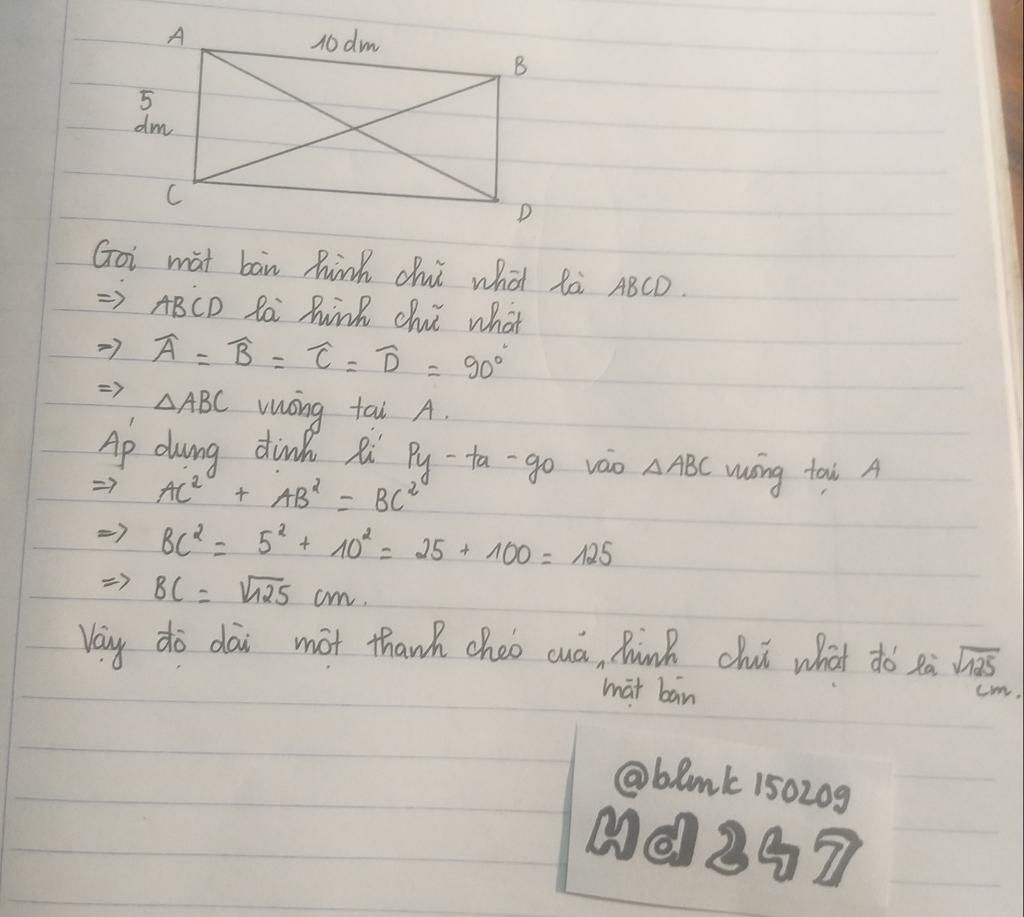 A
10 dm
B
5
dm
C
D
Gọi mặt bàn hình chữ nhật là ABCD.
=> ABCD là hình chữ nhật
=> Â = B̂ = Ĉ = D̂ = 90°
=> △ABC vuông tại A.
Áp dụng định lí Py-ta-go vào △ABC vuông tại A
=> AC² + AB² = BC²
=> BC² = 5² + 10² = 25 + 100 = 125
=> BC = √125 cm.
Vậy độ dài một thanh chéo của ʌ hình chữ nhật đó là √125
mặt bàn
cm.
@blmk150209
Hd247